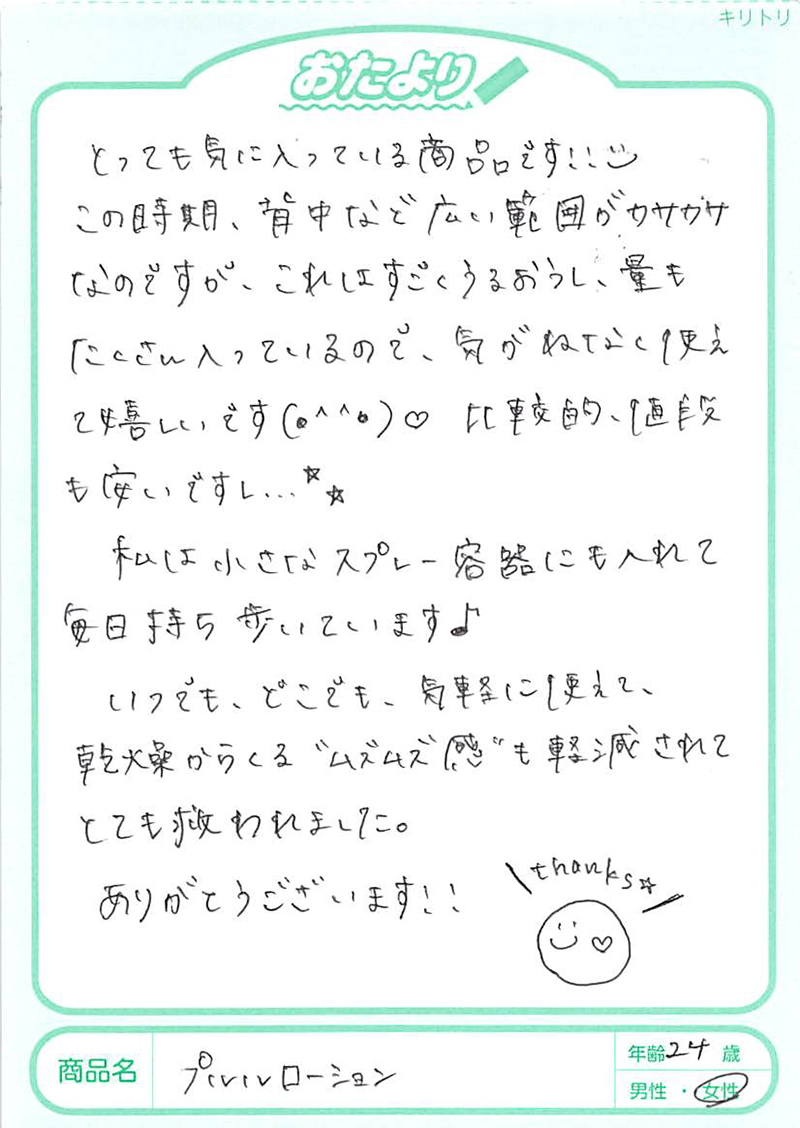 キリトリ
おたより
とっても気に入っている商品です!!
この時期、背中など広い範囲がカサカサ
なのですが、これはすごくうるおうし、量も
たくさん入っているので、気がねなく使え
て嬉しいです(•^^•)♡ 比較的、値段
も安いですし...☆☆
私は小さなスプレー容器にも入れて
毎日持ち歩いています♪
いつでも、どこでも、気軽に使えて、
乾燥からくる"ムズムズ感"も軽減されて
とても救われました。
ありがとうございます!!
\thanks☆/
商品名
プルルローション
年齢24歳
男性・女性